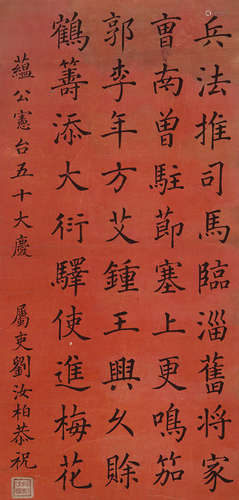 兵法推司馬臨淄舊將家
曺南曾駐節塞上更鳴笳
郭李年方艾鍾王興乆賖
鶴籌添大衍驛使進梅花
蘊公憲台五十大慶 屬吏劉汝柏恭祝